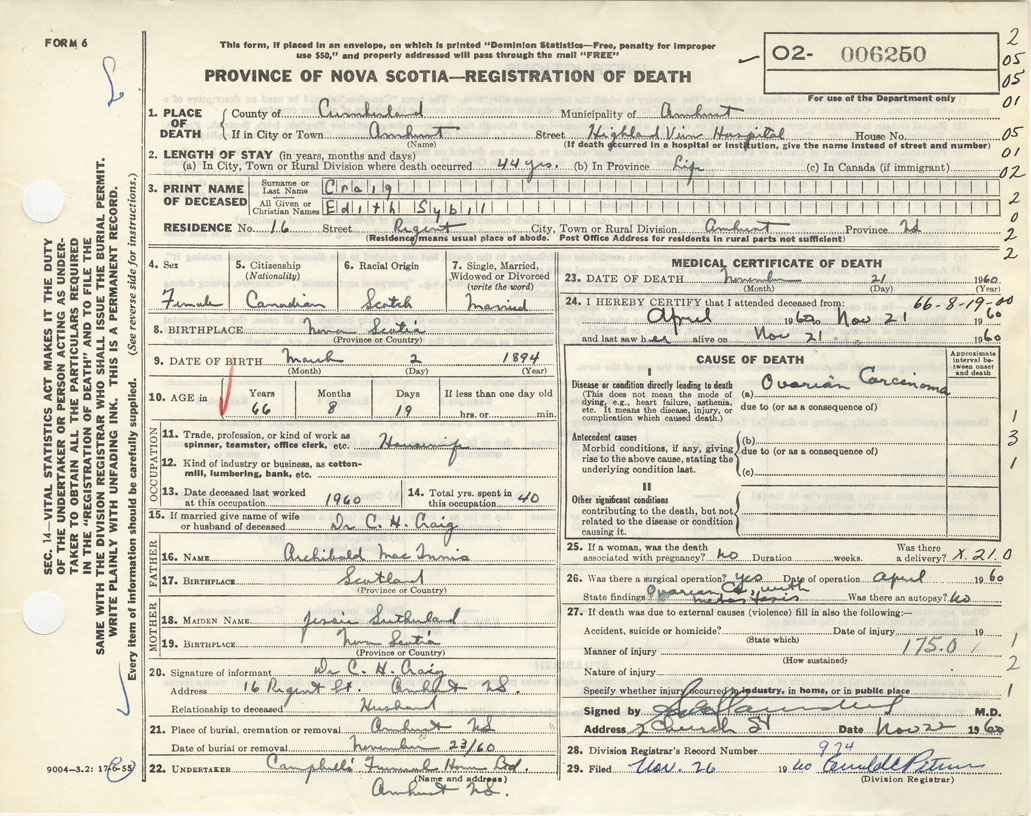 FORM 6
This form, if placed in an envelope, on which is printed "Dominion Statistics—Free, penalty for improper
use $50," and properly addressed will pass through the mail "FREE"
PROVINCE OF NOVA SCOTIA—REGISTRATION OF DEATH
02- 006250
For use of the Department only
2
05
05
01
05
01
02
2
0
2
2
1. PLACE OF DEATH { County of Cumberland Municipality of Amherst
If in City or Town Amherst Street Highland View Hospital House No.
(Name) (If death occurred in a hospital or institution, give the name instead of street and number)
2. LENGTH OF STAY (in years, months and days)
(a) In City, Town or Rural Division where death occurred 44 yrs. (b) In Province Life (c) In Canada (if immigrant)
3. PRINT NAME OF DECEASED
Surname or Last Name Craig
All Given or Christian Names Edith Sybil
RESIDENCE No. 16 Street Regent City, Town or Rural Division Amherst Province NS
(Residency means usual place of abode. Post Office Address for residents in rural parts not sufficient)
4. Sex
Female
5. Citizenship
(Nationality)
Canadian
6. Racial Origin
Scotch
7. Single, Married,
Widowed or Divorced
(write the word)
Married
8. BIRTHPLACE Nova Scotia
(Province or Country)
9. DATE OF BIRTH March 2 1894
(Month) (Day) (Year)
10. AGE in Years Months Days If less than one day old
66 8 19 hrs. or min.
OCCUPATION
11. Trade, profession, or kind of work as
spinner, teamster, office clerk, etc. Housewife
12. Kind of industry or business, as cotton-
mill, lumbering, bank, etc.
13. Date deceased last worked
at this occupation 1960
14. Total yrs. spent in
this occupation 40
15. If married give name of wife
or husband of deceased Dr C. H. Craig
FATHER
16. NAME Archibald Mac Innis
17. BIRTHPLACE Scotland
(Province or Country)
MOTHER
18. MAIDEN NAME Jessie Sutherland
19. BIRTHPLACE Nova Scotia
(Province or Country)
20. Signature of informant Dr C. H. Craig
Address 16 Regent St. Amherst NS.
Relationship to deceased Husband
21. Place of burial, cremation or removal Amherst NS
Date of burial or removal November 23/60
22. UNDERTAKER Campbells Funeral Home
(Name and address)
Amherst NS.
MEDICAL CERTIFICATE OF DEATH
23. DATE OF DEATH November 21 1960
(Month) (Day) (Year)
66-8-19-00
24. I HEREBY CERTIFY that I attended deceased from:
April 1960 to Nov 21 1960
and last saw her alive on Nov 21 1960
CAUSE OF DEATH
Approximate interval between onset and death
I
Disease or condition directly leading to death
(This does not mean the mode of
dying, e.g., heart failure, asthenia,
etc. It means the disease, injury, or
complication which caused death.)
(a) Ovarian Carcinoma
due to (or as a consequence of)
Antecedent causes
Morbid conditions, if any, giving
rise to the above cause, stating the
underlying condition last.
(b)
due to (or as a consequence of)
(c)
1
3
1
II
Other significant conditions
contributing to the death, but not
related to the disease or condition
causing it.
25. If a woman, was the death
associated with pregnancy? No Duration weeks. Was there
a delivery? X.21.0
26. Was there a surgical operation? Yes Date of operation April 1960
State findings Ovarian Ca with metastasis Was there an autopsy? No
27. If death was due to external causes (violence) fill in also the following:—
Accident, suicide or homicide? Date of injury 19
(State which)
Manner of injury 175.0 1
(How sustained)
Nature of injury 2
Specify whether injury occurred in industry, in home, or in public place 1
Signed by M.D.
Address 2 Church St Date Nov 22 1960
28. Division Registrar's Record Number 974
29. Filed Nov. 26 1960
(Division Registrar)
SEC. 14—VITAL STATISTICS ACT MAKES IT THE DUTY
OF THE UNDERTAKER OR PERSON ACTING AS UNDER-
TAKER TO OBTAIN ALL THE PARTICULARS REQUIRED
IN THE "REGISTRATION OF DEATH" AND TO FILE THE
SAME WITH THE DIVISION REGISTRAR WHO SHALL ISSUE THE BURIAL PERMIT.
WRITE PLAINLY WITH UNFADING INK. THIS IS A PERMANENT RECORD.
Every item of information should be carefully supplied. (See reverse side for instructions.)
9004-3.2: 17-6-55